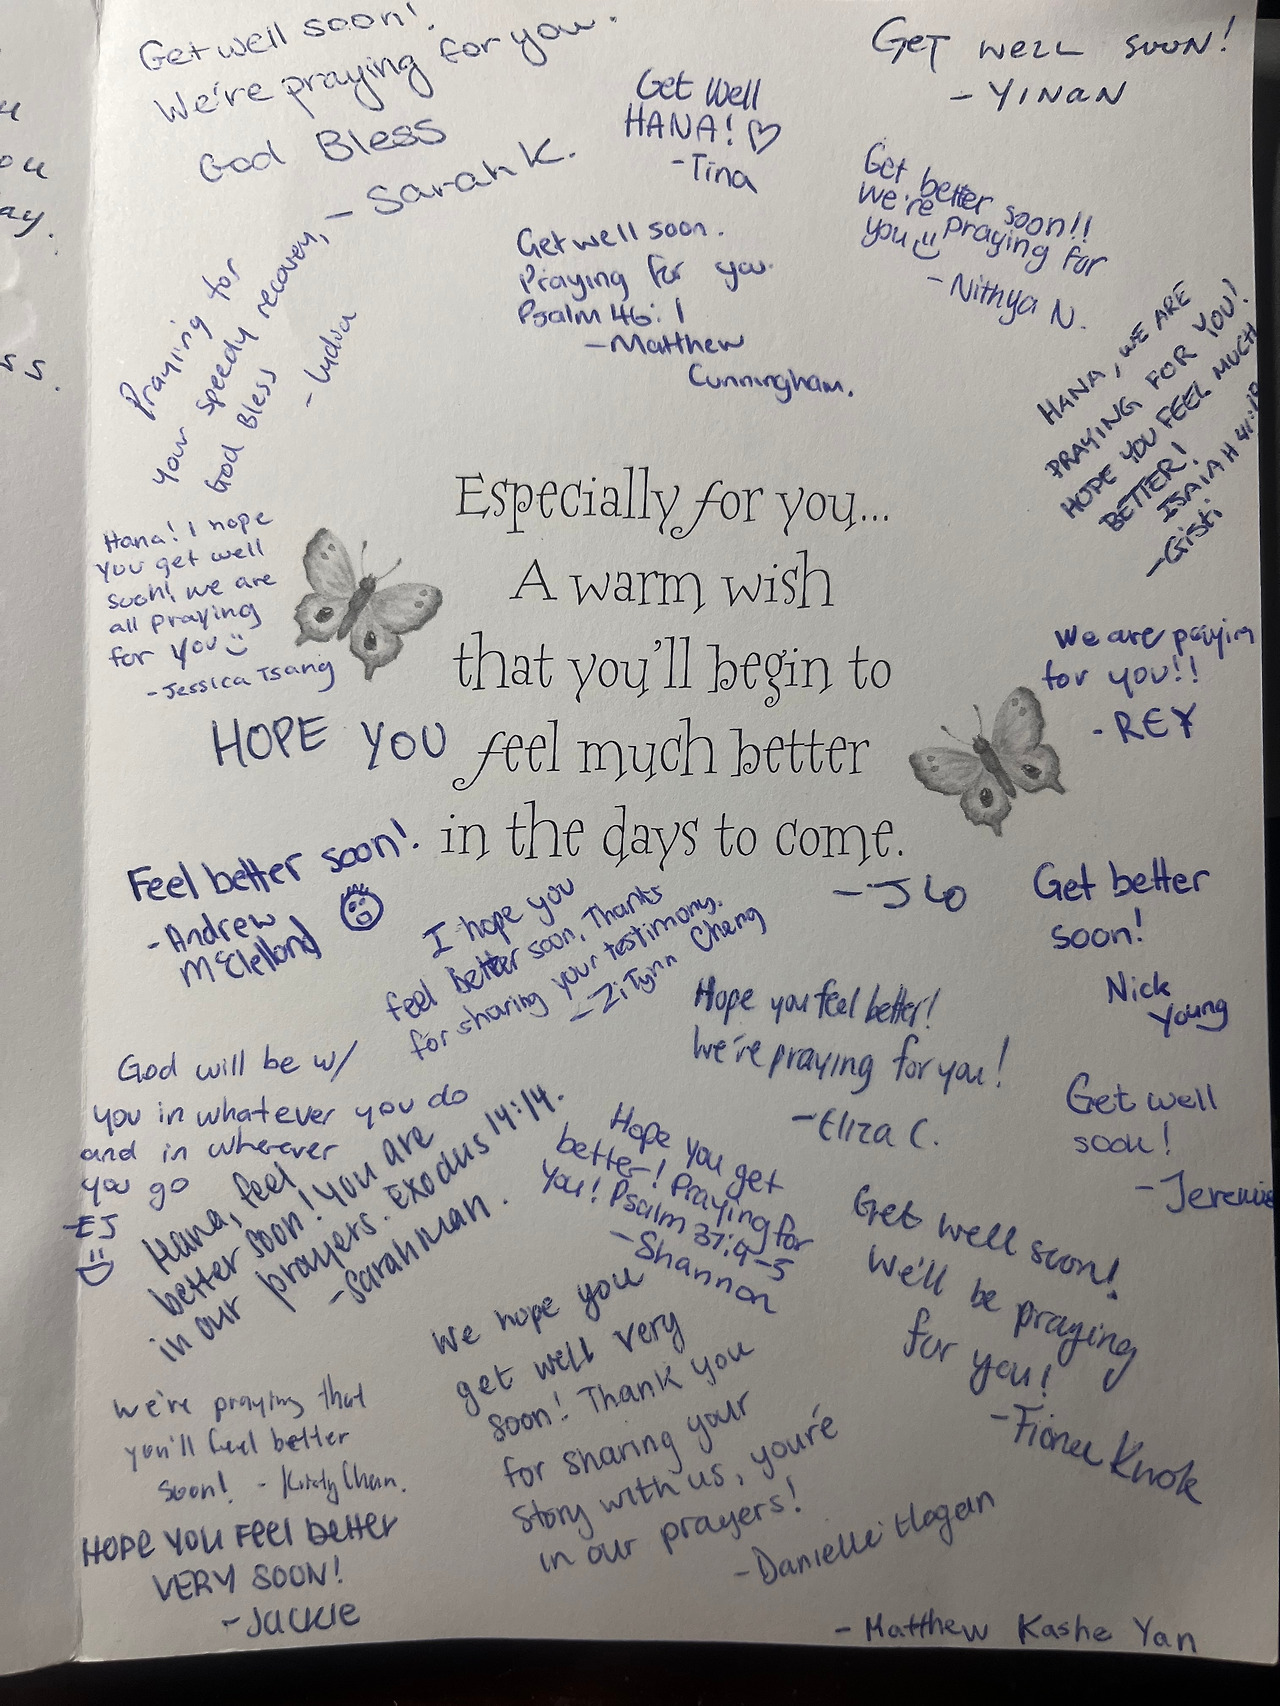 Get well soon!
We're praying for you.
God Bless
- Sarah K.
Get Well
HANA! ♡
-Tina
GET WELL SOON!
- YINAN
Get better soon!!
We're praying for
you
- Nithya N.
Get well soon.
Praying for you.
Psalm 46:1
- Matthew
Cunningham.
Praying for
your speedy recovery,
God Bless
- Lydia
HANA, WE ARE
PRAYING FOR YOU!
HOPE YOU FEEL MUCH
BETTER!
ISAIAH
ou
ay.
ss.
Hana! I hope
you get well
soon! we are
all praying
for you
- Jessica Tsang
Especially for you...
A warm wish
that you'll begin to
HOPE YOU feel much better
in the days to come.
- JLO
We are prayin
for you!!
- REY
Feel better soon!
- Andrew
McClelland
I hope you
feel better soon. Thanks
for sharing your testimony.
- Zi Tynn Cheng
Get better
soon!
Nick
Young
Hope you feel better!
We're praying for you!
- Eliza C.
God will be w/
you in whatever you do
and in wherever
you go
- EJ
Get well
soon!
- Jeremie
Hana, feel
better soon! You are
in our prayers. Exodus 14:14.
- Sarah man.
Hope you get
better! Praying for
you! Psalm 37:4-5
- Shannon
Get well soon!
We'll be praying
for you!
- Fiona Kwok
We hope you
get well very
soon! Thank you
for sharing your
story with us, you're
in our prayers!
- Danielle Hogan
We're praying that
you'll feel better
soon! - Kristy Chan.
HOPE YOU FEEL better
VERY SOON!
- JACKIE
- Matthew Kashe Yan